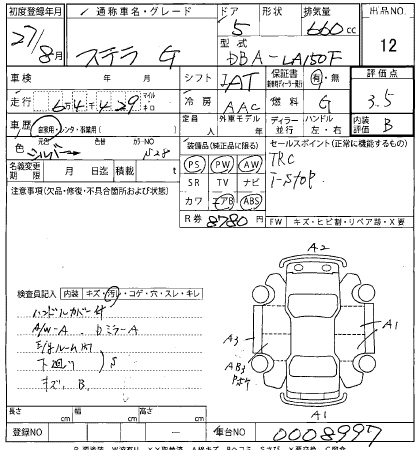 初度登録年月 通称車名・グレード ドア 形状 排気量 出品NO
27/8月 ステラ G 5 660cc 12
型式 DBA-LA150F
車検 年 月 シフト IAT 保証書 有・無 評価点
走行 6 4 4 2 9 マイル キロ 冷房 AAC 燃料 G 3.5
車歴 自家用・レンタ・事業用( ) 定員 人 外車モデル 年 ディーラー 並行 ハンドル 左・右 内装評価 B
色 元色 シルバー 色替 カラーNO S28 装備品(純正品に限る) セールスポイント(正常に機能するもの)
名義変更期限 月 日迄 積載 t PS PW AW TRC
注意事項(欠品・修復・不具合箇所および状態) SR TV ナビ i-stop
カワ エアB ABS
R券 8780円 FW キズ・ヒビ割・リペア跡・X要
検査員記入 内装 キズ・汚レ・コゲ・穴・スレ・キレ A2
ハンドルカバー付
A/W-A ミラーA A3 A1
下廻り S AB3
キズ B
A1
長さ cm 幅 cm 高さ cm
登録NO 車台NO 0008997